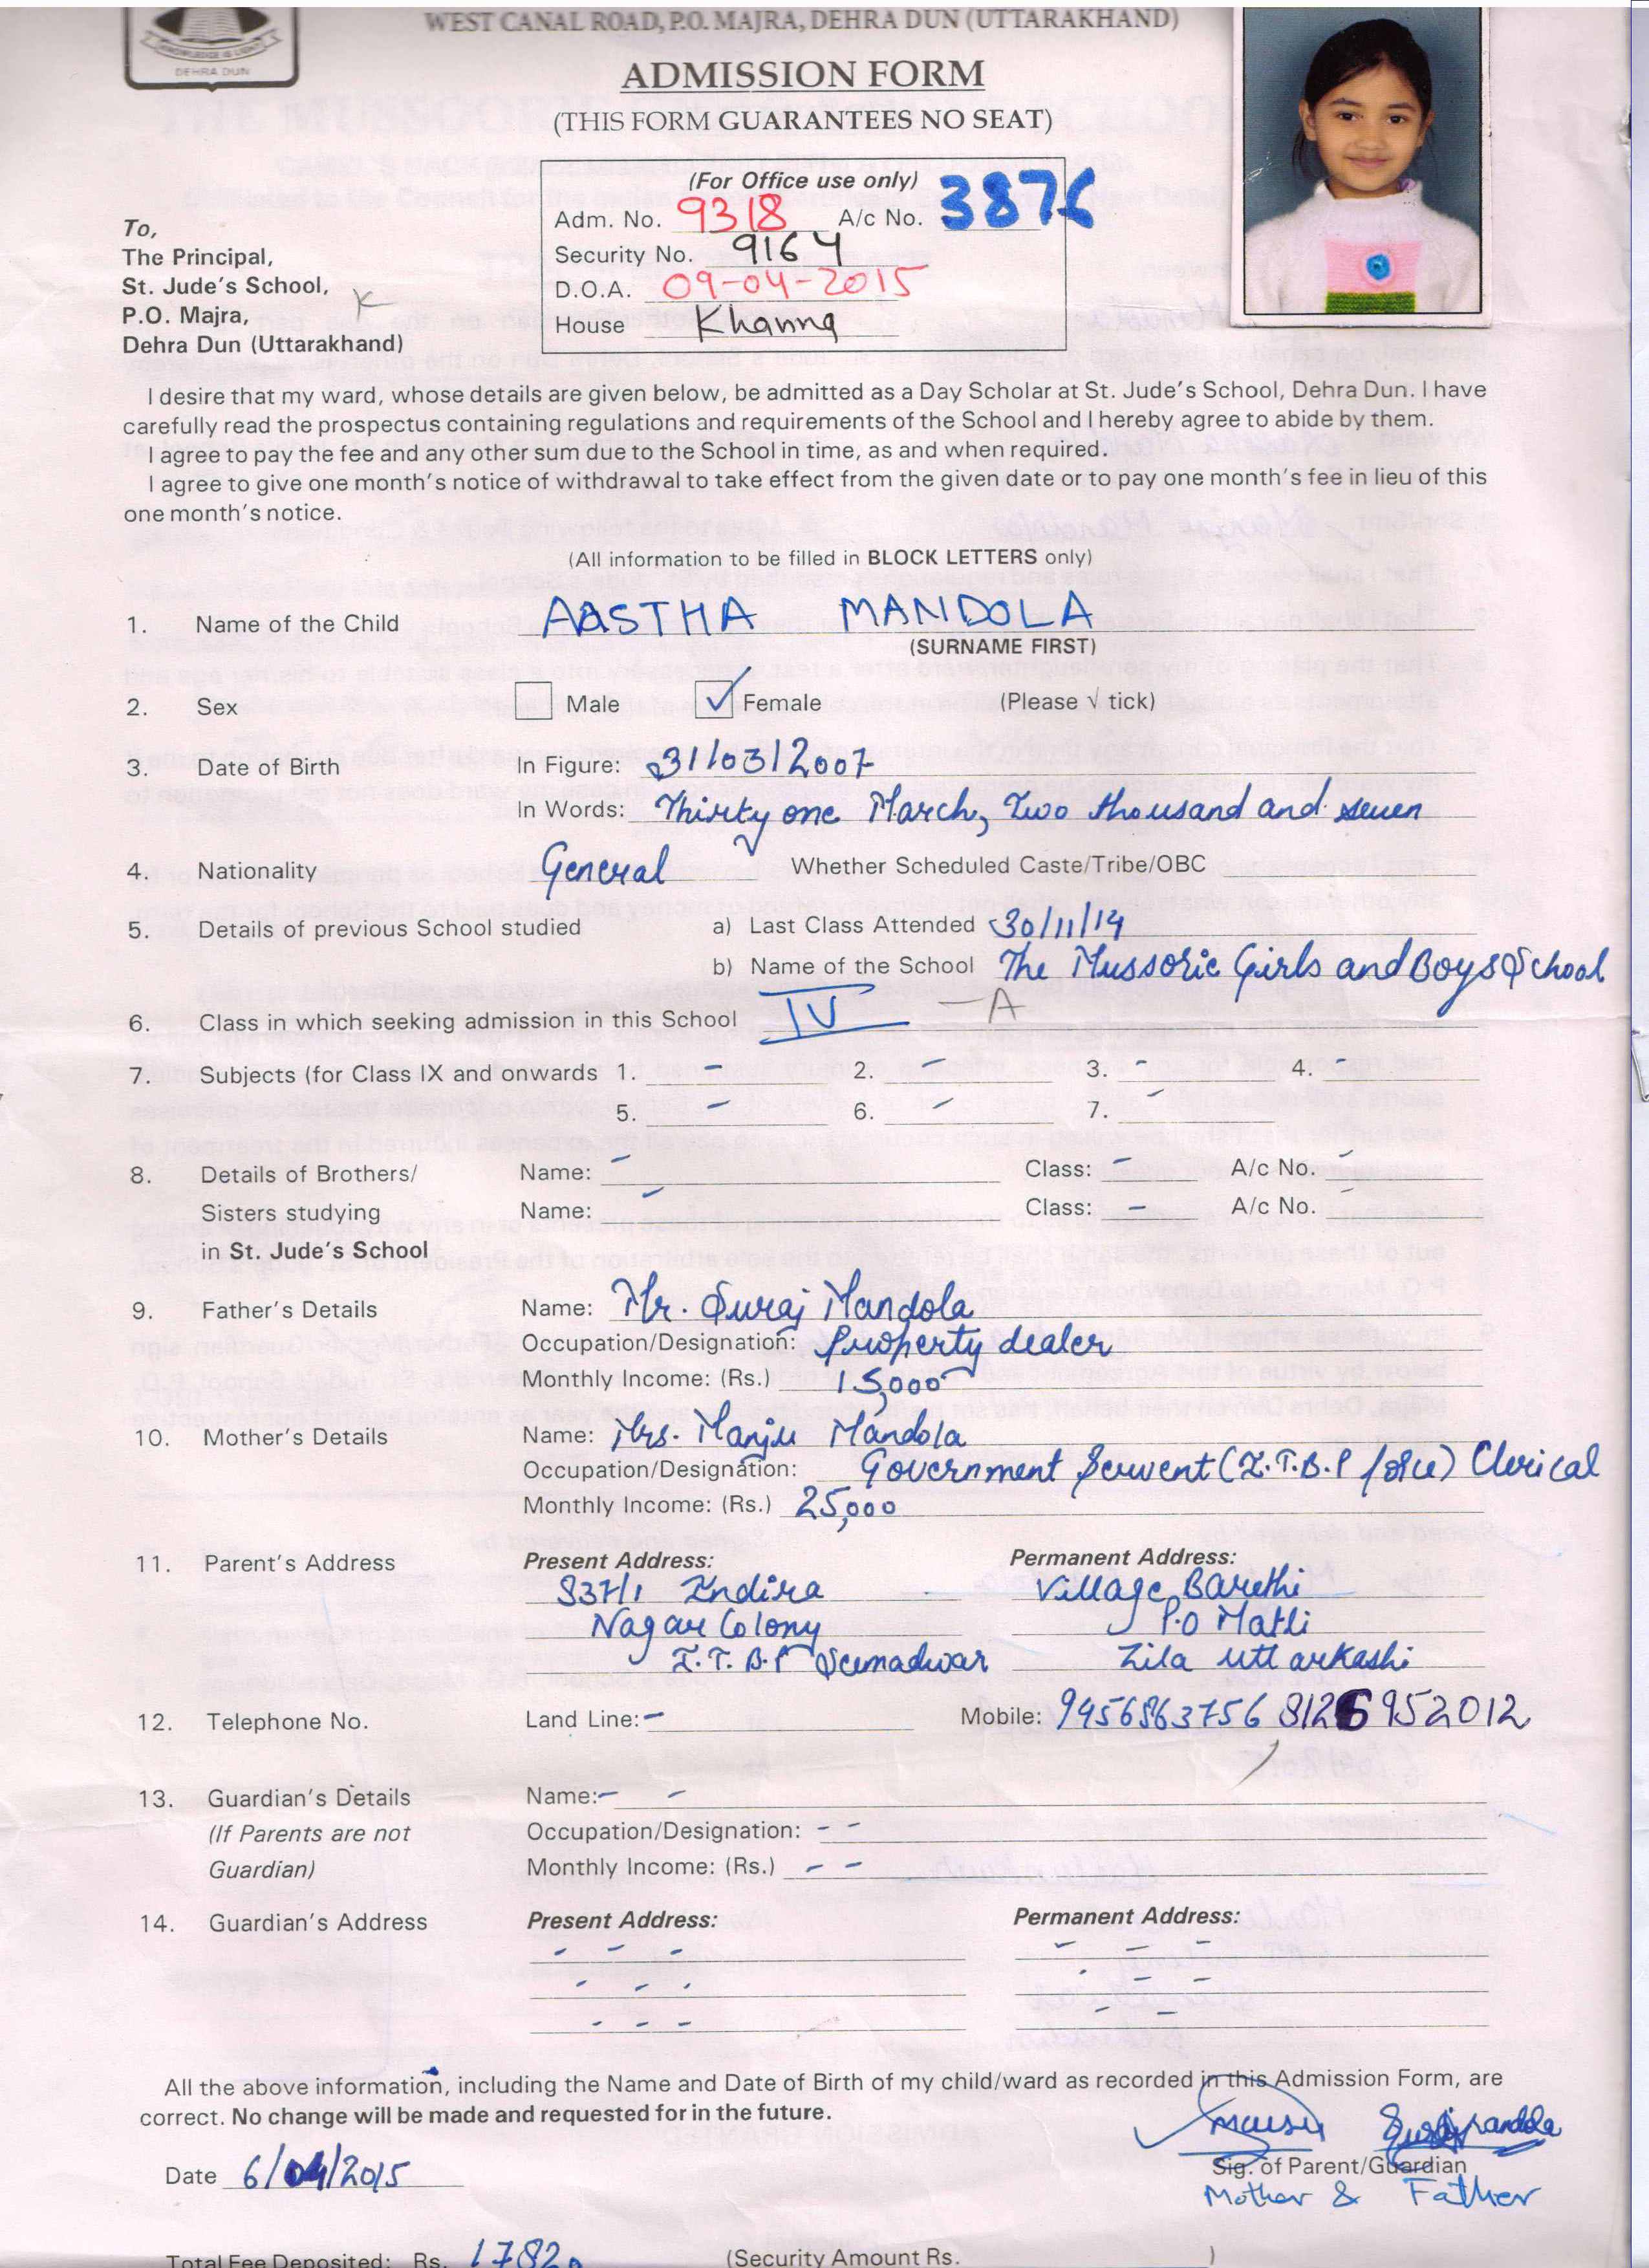 WEST CANAL ROAD, P.O. MAJRA, DEHRA DUN (UTTARAKHAND)
KNOWLEDGE IS LIGHT
DEHRA DUN
ADMISSION FORM
(THIS FORM GUARANTEES NO SEAT)
(For Office use only)
Adm. No. 9318 A/c No. 3876
Security No. 9164
D.O.A. 09-04-2015
House Khanna
To,
The Principal,
St. Jude's School,
P.O. Majra,
Dehra Dun (Uttarakhand)
K
I desire that my ward, whose details are given below, be admitted as a Day Scholar at St. Jude's School, Dehra Dun. I have
carefully read the prospectus containing regulations and requirements of the School and I hereby agree to abide by them.
I agree to pay the fee and any other sum due to the School in time, as and when required.
I agree to give one month's notice of withdrawal to take effect from the given date or to pay one month's fee in lieu of this
one month's notice.
(All information to be filled in BLOCK LETTERS only)
1. Name of the Child AASTHA MANDOLA
(SURNAME FIRST)
2. Sex Male ✓ Female (Please √ tick)
3. Date of Birth In Figure: 31/03/2007
In Words: Thirty one March, Two thousand and seven
4. Nationality General Whether Scheduled Caste/Tribe/OBC
5. Details of previous School studied a) Last Class Attended 30/11/14
b) Name of the School The Mussorie Girls and Boys School
6. Class in which seeking admission in this School IV - A
7. Subjects (for Class IX and onwards 1. - 2. - 3. - 4. -
5. - 6. - 7. -
8. Details of Brothers/ Name: - Class: - A/c No. -
Sisters studying Name: - Class: - A/c No. -
in St. Jude's School
9. Father's Details Name: Mr. Suraj Mandola
Occupation/Designation: Property dealer
Monthly Income: (Rs.) 15,000
10. Mother's Details Name: Mrs. Manju Mandola
Occupation/Designation: Government Servent (I.T.B.P force) Clerical
Monthly Income: (Rs.) 25,000
11. Parent's Address Present Address: Permanent Address:
837/1 Indira Village Barethi
Nagar Colony P.O Matli
I.T.B.P Seemadwar Zila Uttarkashi
12. Telephone No. Land Line: - Mobile: 9456863756 8126952012
13. Guardian's Details Name: - -
(If Parents are not Occupation/Designation: - -
Guardian) Monthly Income: (Rs.) - -
14. Guardian's Address Present Address: Permanent Address:
- - - - - -
- - - - - -
- - - - -
All the above information, including the Name and Date of Birth of my child/ward as recorded in this Admission Form, are
correct. No change will be made and requested for in the future.
Date 6/04/2015
Sig. of Parent/Guardian
Mother & Father
Total Fee Deposited: Rs. 1782 (Security Amount Rs. )